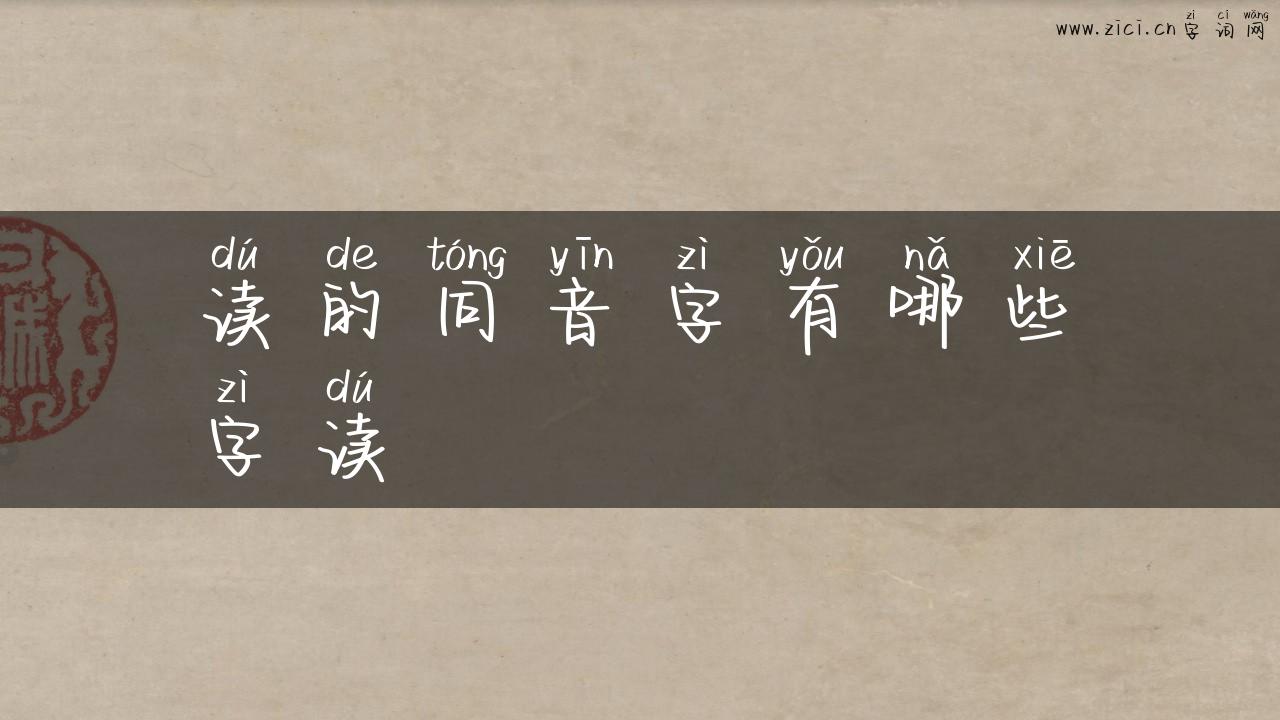 zì cí wǎng
www.zici.cn 字 词 网
dú de tóng yīn zì yǒu nǎ xiē
读 的 同 音 字 有 哪 些
zì dú
字 读